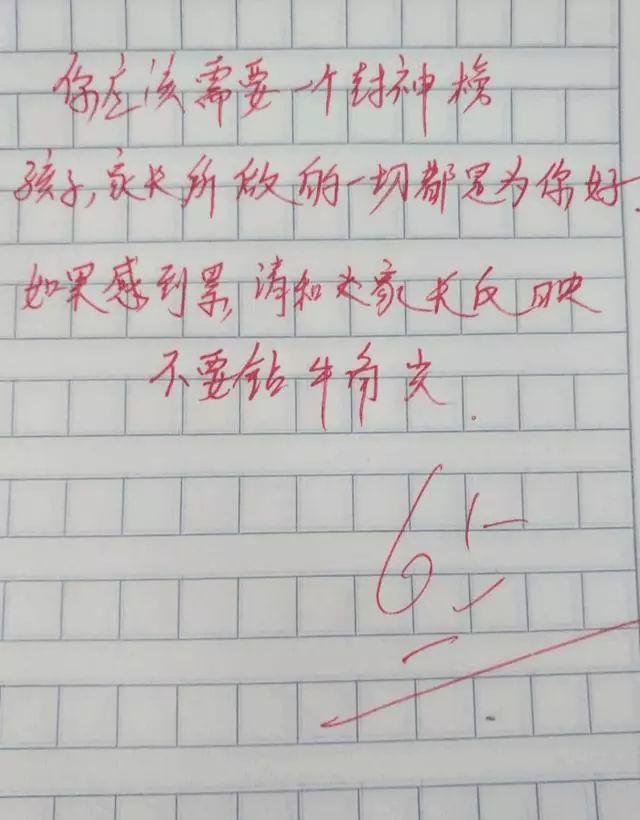 你应该需要一个封神榜
孩子,家长所做的一切都是为你好.
如果感到累,请和大家长反映
不要钻牛角尖.
65